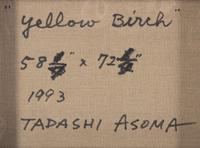 "Yellow Birch"
58" x 72"
1993
TADASHI ASOMA